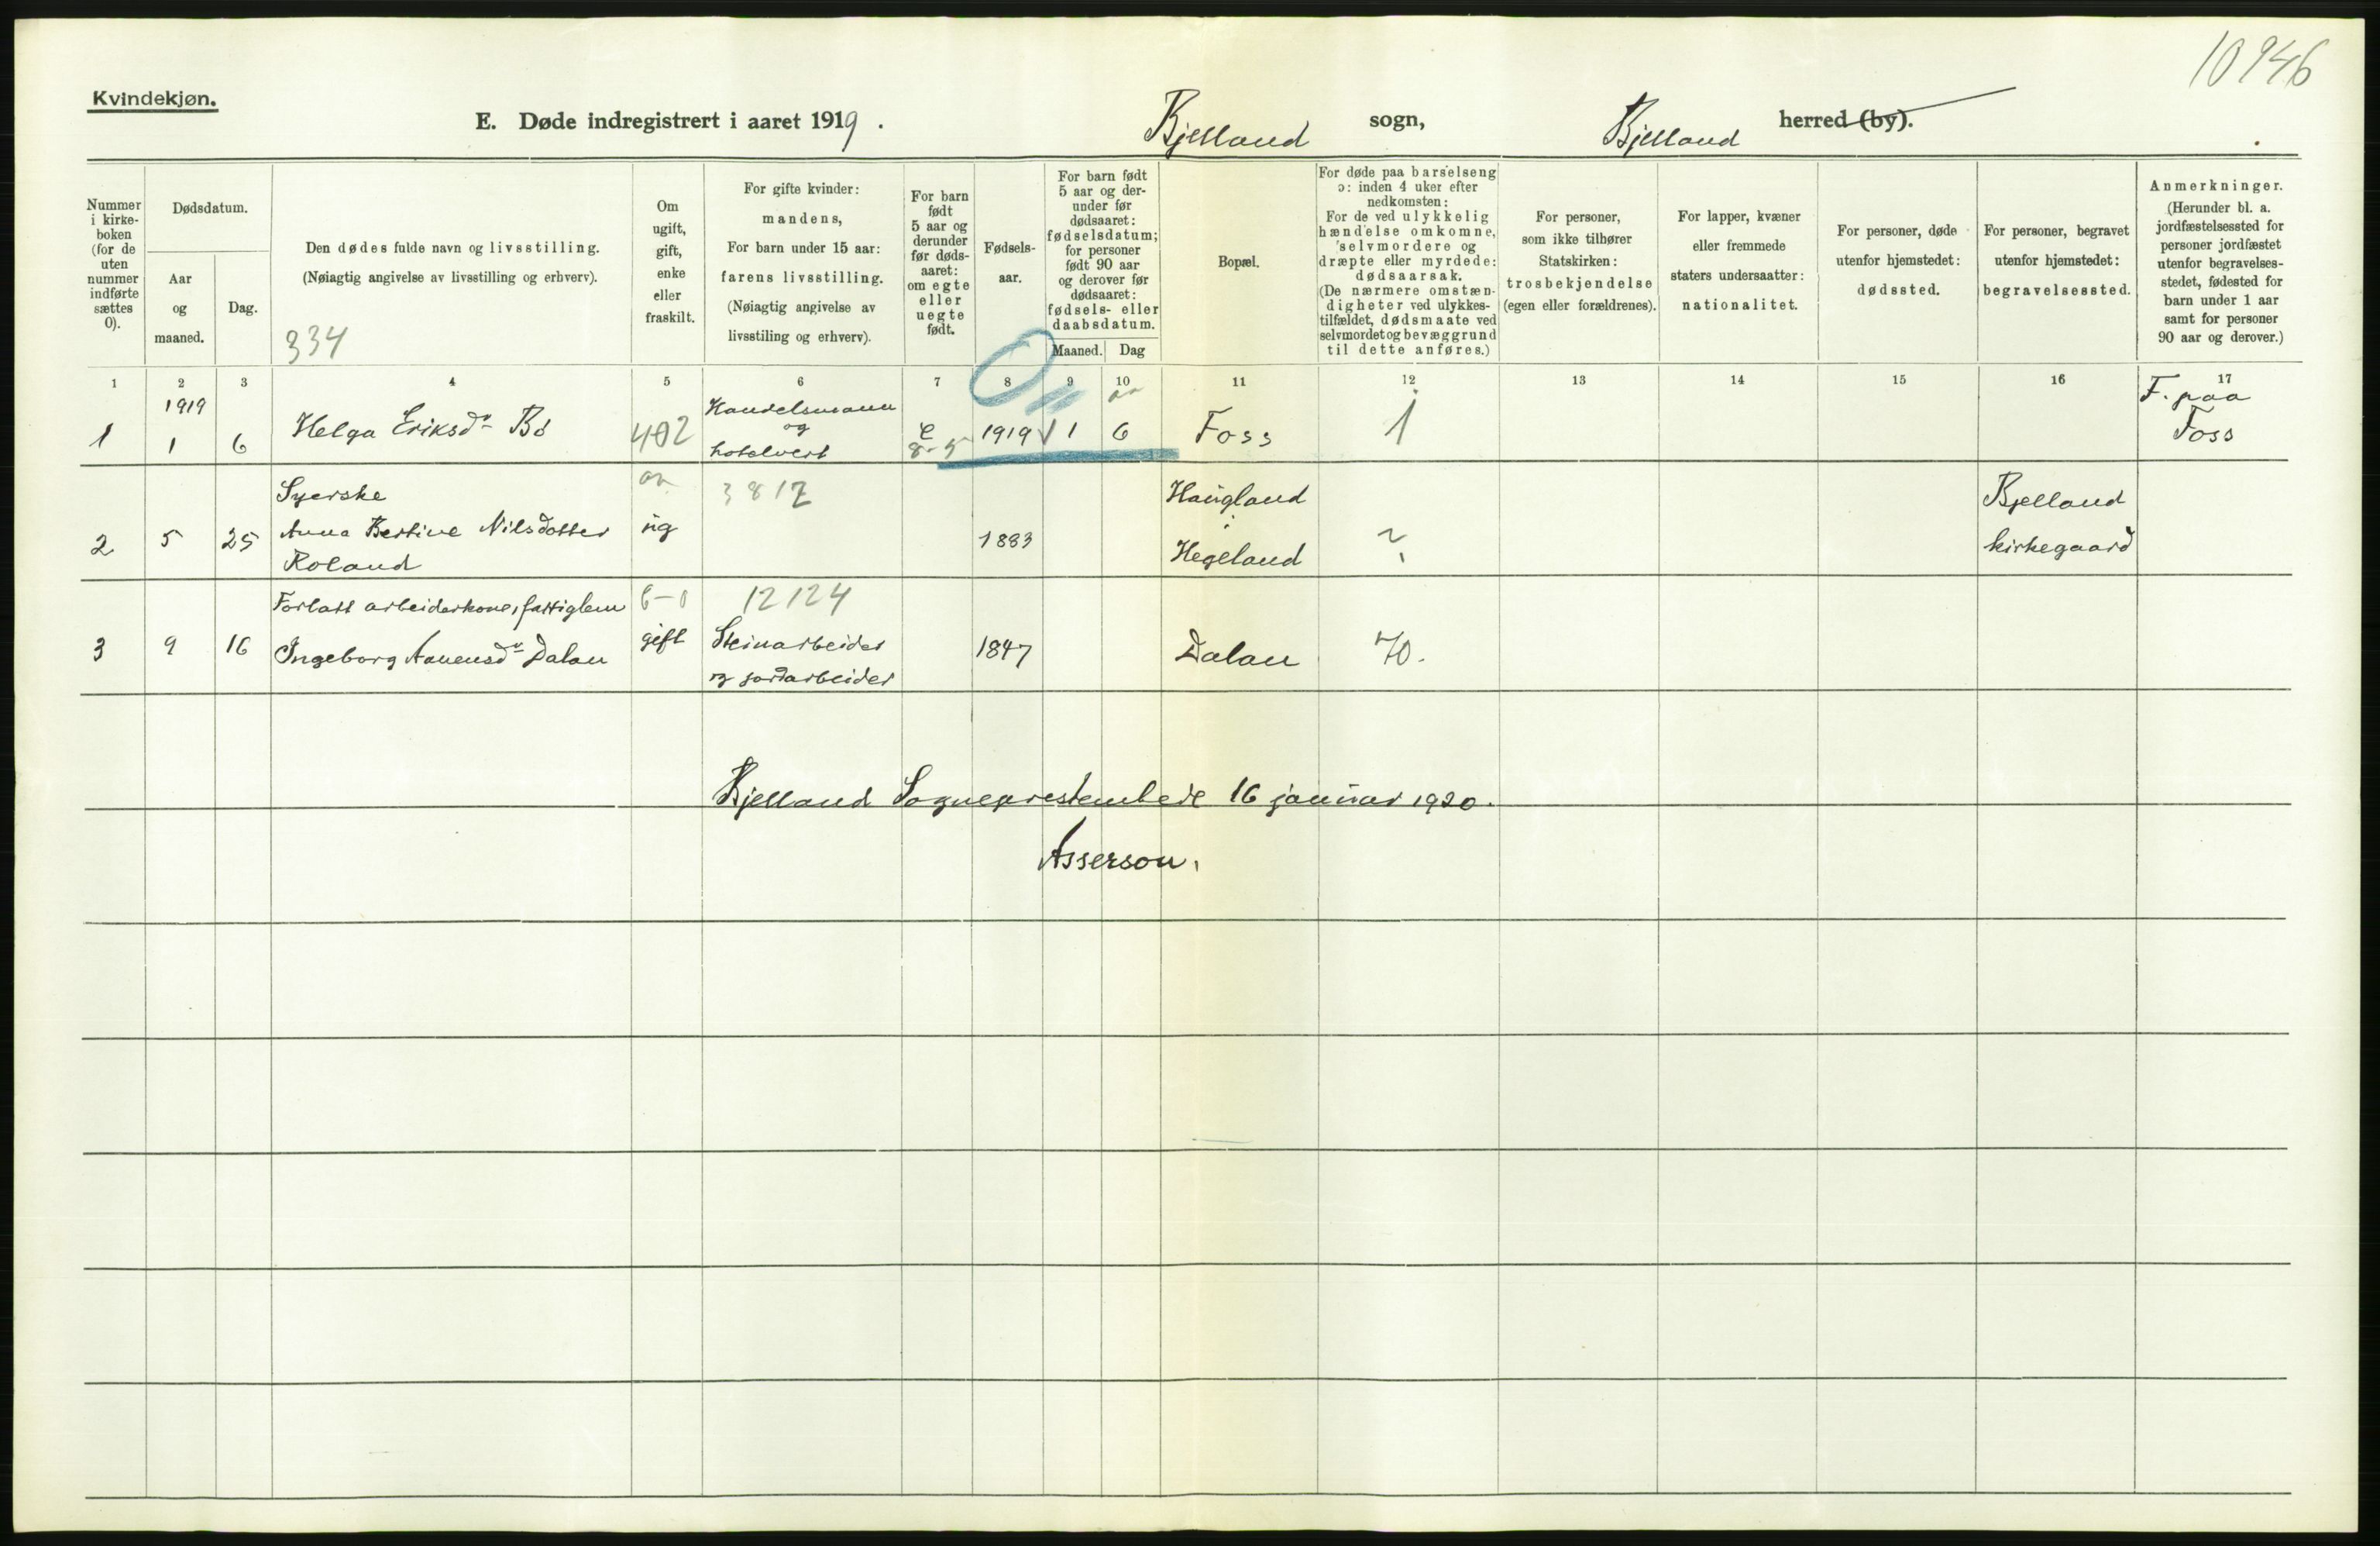 10946
Kvindekjøn.
E. Døde indregistrert i aaret 1919.
Bjelland sogn,
Bjelland herred (by).
Nummer i kirke-boken (for de uten nummer indførte sættes 0).
Dødsdatum.
Aar og maaned.
Dag.
Den dødes fulde navn og livsstilling.
(Nøiagtig angivelse av livsstilling og erhverv).
334
Om ugift, gift, enke eller fraskilt.
For gifte kvinder: mandens,
For barn under 15 aar: farens livsstilling.
(Nøiagtig angivelse av livsstiling og erhverv).
For barn født 5 aar og derunder før døds-aaret: om egte eller uegte født.
Fødsels-aar.
For barn født 5 aar og der-under før dødsaaret: fødselsdatum; for personer født 90 aar og derover før dødsaaret: fødsels- eller daabsdatum.
Maaned. Dag
Bopæl.
For døde paa barselseng ɔ: inden 4 uker efter nedkomsten:
For de ved ulykkelig hændelse omkomne, selvmordere og dræpte eller myrdede: dødsaarsak.
(De nærmere omstæn-digheter ved ulykkes-tilfældet, dødsmaate ved selvmordet og bevæggrund til dette anføres.)
For personer, som ikke tilhører Statskirken: trosbekjendelse (egen eller forældrenes).
For lapper, kvæner eller fremmede staters undersaatter: nationalitet.
For personer, døde utenfor hjemstedet: dødssted.
For personer, begravet utenfor hjemstedet: begravelsessted.
Anmerkninger.
(Herunder bl. a. jordfæstelsessted for personer jordfæstet utenfor begravelses-stedet, fødested for barn under 1 aar samt for personer 90 aar og derover.)
1 2 3 4 5 6 7 8 9 10 11 12 13 14 15 16 17
1919
1 1 6 Helga Eriksdr Bø 402 Handelsmann og hotelvert e 8-5 1919 1 6 Foss 1 F. paa Foss
Syerske
2 5 25 Anna Bertine Nilsdotter Roland ug 3812 1883 Haugland i Hegeland ? Bjelland kirkegaard
Forlatt arbeiderkone, fattiglem 6-0 12124
3 9 16 Ingeborg Aanensdr Dalan gift Steinarbeider og jordarbeider 1847 Dalan 70.
Bjelland Sogneprestembede 16 januar 1920.
Asserson.